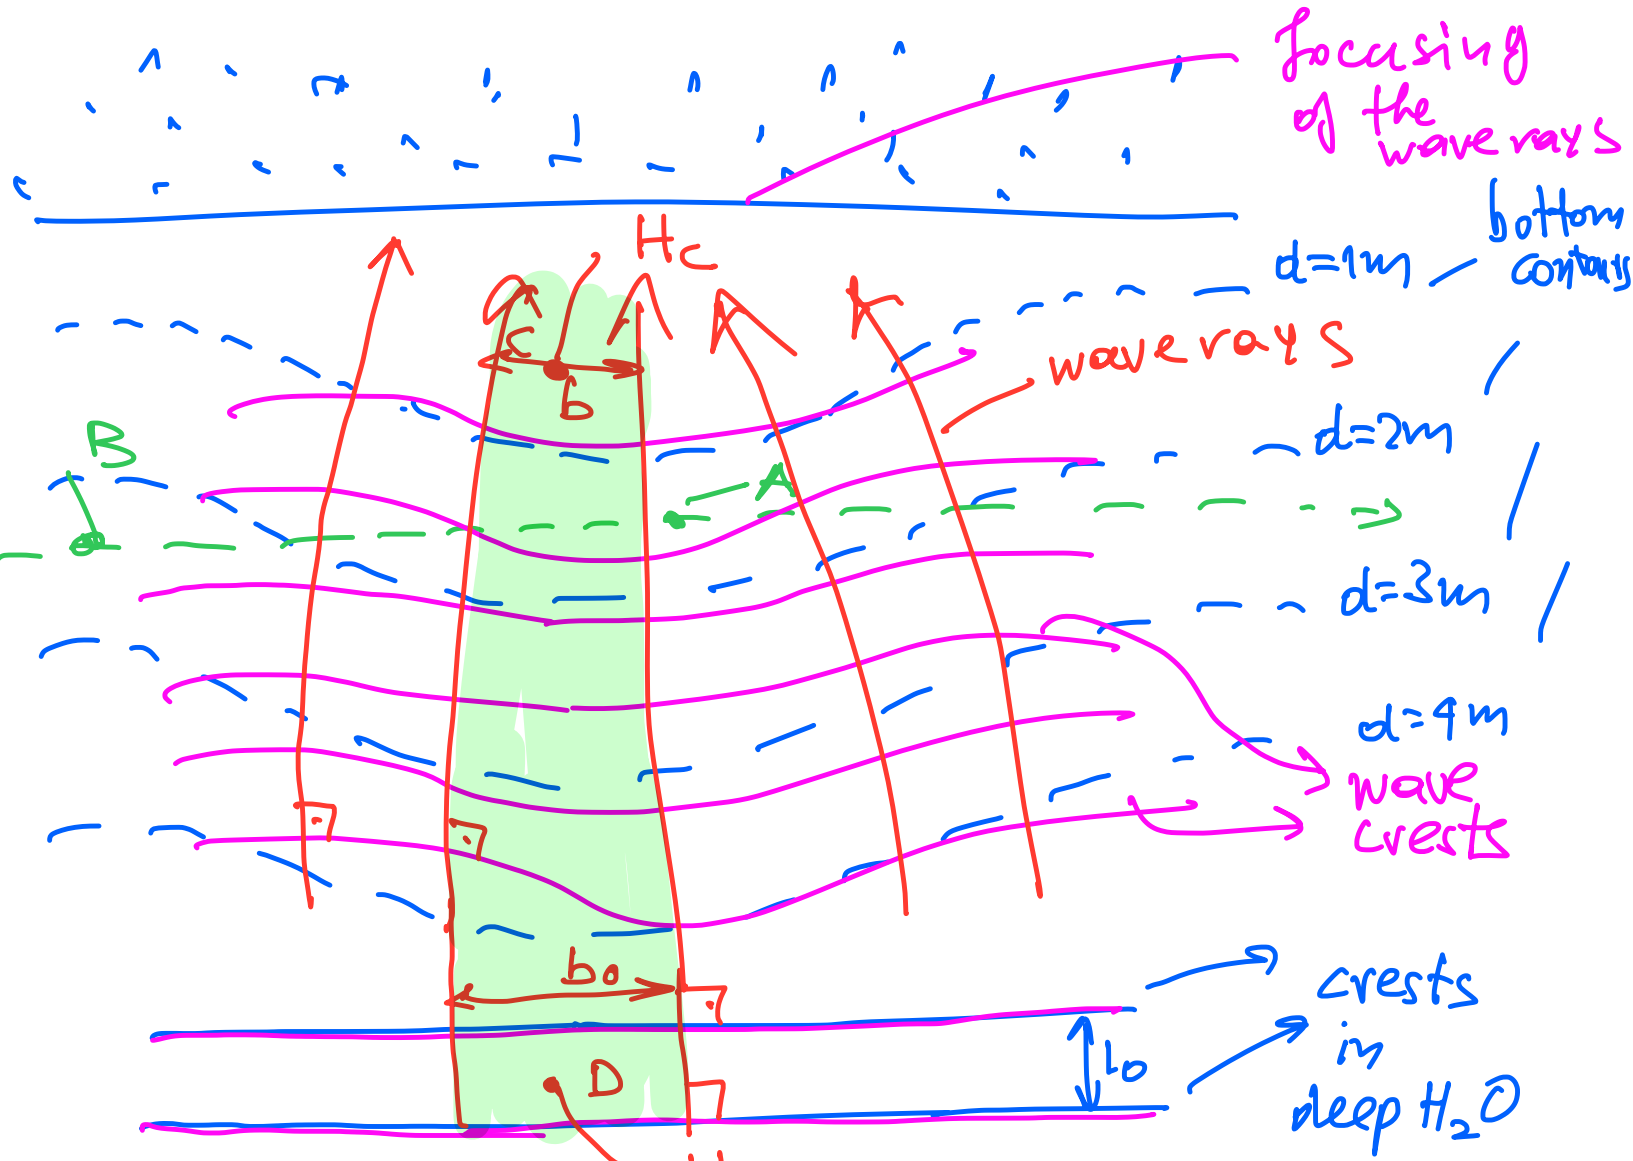 focusing
of the
wave rays
bottom
contours
Hc
d=1m
wave rays
C
b
d=2m
B
A
d=3m
d=4m
wave
crests
b0
crests
in
deep H2O
L0
D